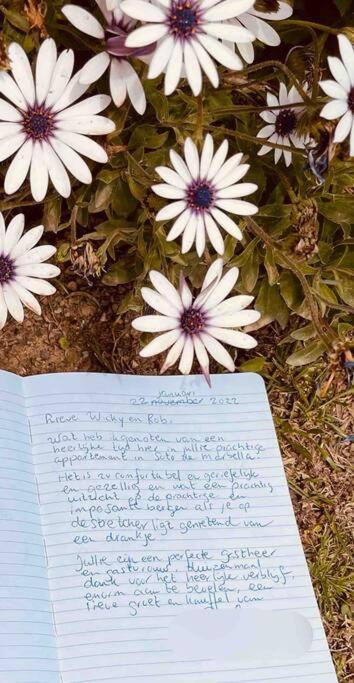 januari
22 november 2022
Lieve Wicky en Rob.
Wat heb ik genoten van een
heerlijke tijd hier in jullie prachtige
appartement in Soto de Marbella.
Het is zo comfortabel en geriefelijk
en gezellig en met een prachtig
uitzicht op de prachtige en
imposante bergen als je op
de stretcher ligt genietend van
een drankje.
Jullie zijn een perfecte gastheer
en gastvrouw, duizenmaal
dank voor het heerlijke verblijf,
enorm aan te bevelen, een
lieve groet en knuffel van